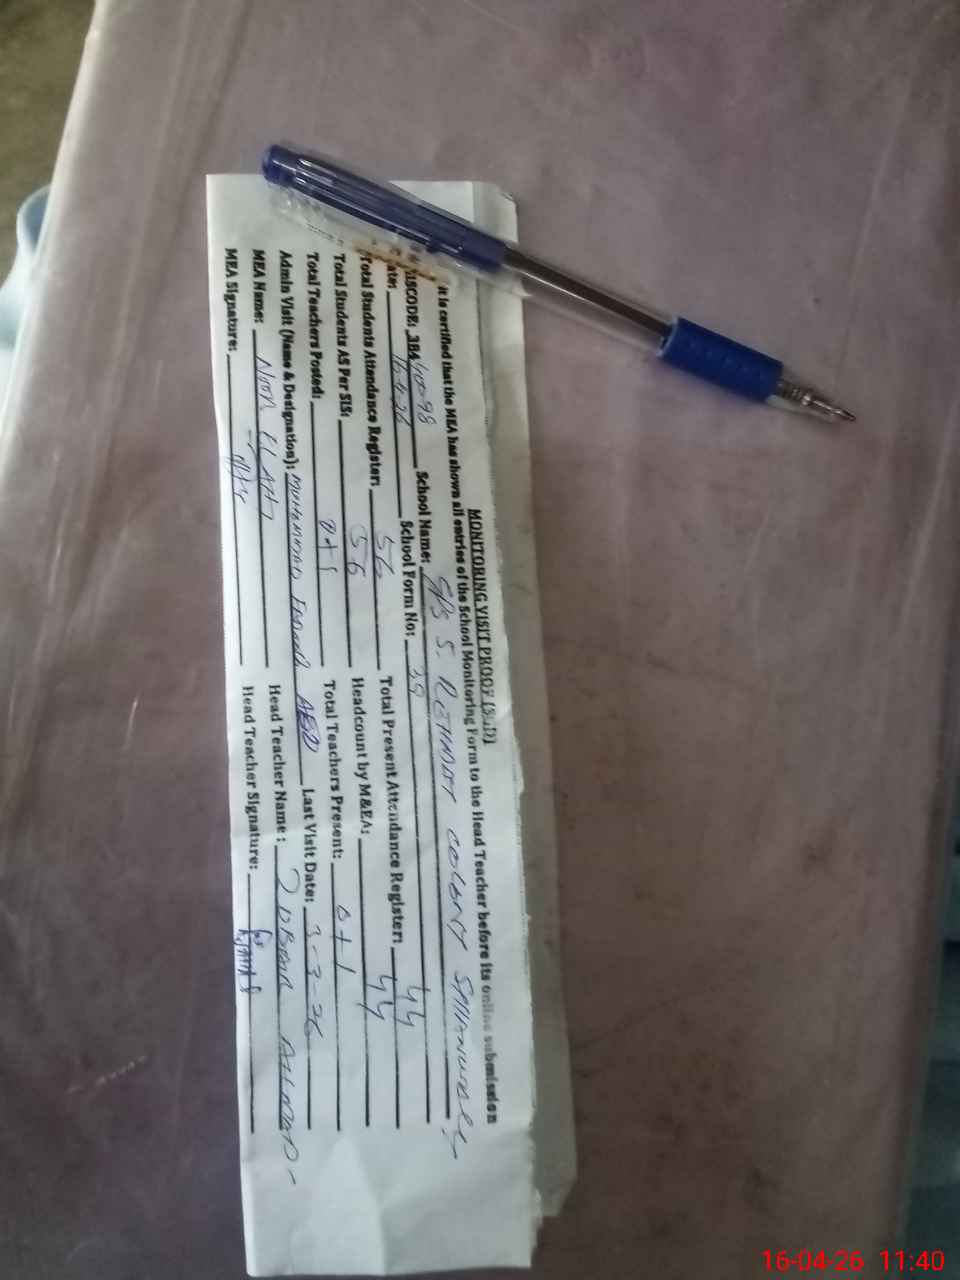 MONITORING VISIT PROOF (SED)
It is certified that the MEA has shown all entries of the School Monitoring Form to the Head Teacher before its online submission
EMISCODE: 38440098 School Name: GPS S. REHMAT COLONY
Date: 16-4-26 School Form No: 39
Total Students Attendance Register: 56 Total Present Attendance Register: 44
Total Students AS Per SIS: 56 Headcount by M&EA: 44
Total Teachers Posted: 0+1 Total Teachers Present: 0+1
Admin Visit (Name & Designation): MUHAMMAD AEO Last Visit Date: 3-3-26
MEA Name: NOOR ELAHI Head Teacher Name: AHMAD
MEA Signature: Head Teacher Signature:
16-04-26 11:40